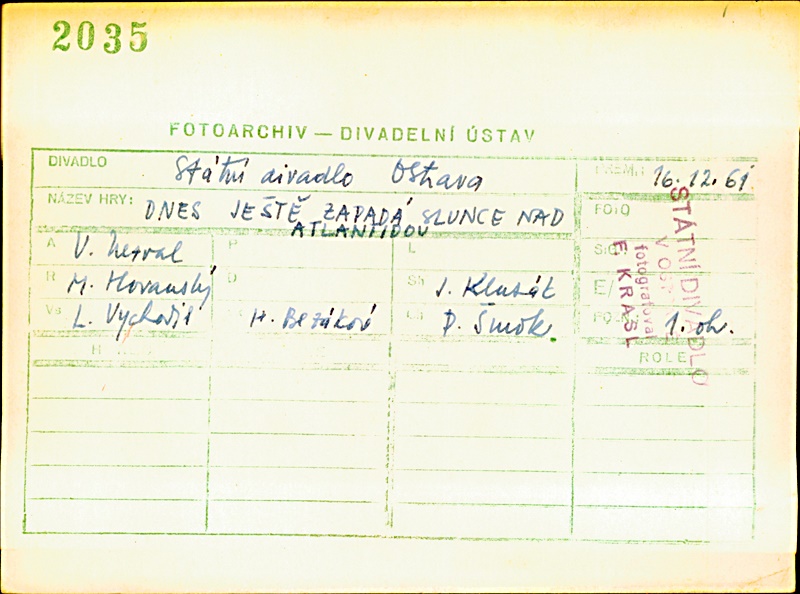 2035
FOTOARCHIV — DIVADELNÍ ÚSTAV
DIVADLO Státní divadlo Ostrava
PREM.: 16.12.61
NÁZEV HRY: DNES JEŠTĚ ZAPADÁ SLUNCE NAD
ATLANTIDOU
FOTO
A V. Nezval
P
L
SIG.
R M. Hovanský
D
Sb J. Klusák
E/
Vs L. Vychodil
H. Bezáková
P. Šmok
1. ob.
H
ROLE
STÁTNÍ DIVADLO
fotografoval
E. KRASL